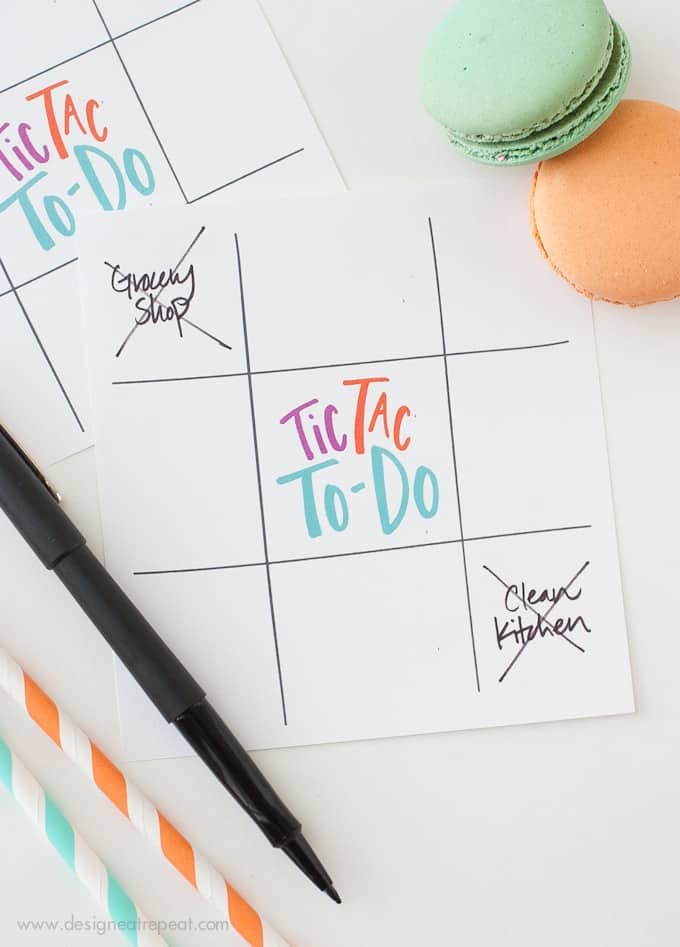 Tic Tac
To-Do
Grocery
Shop
Tic Tac
To-Do
Clean
Kitchen
www.designeatrepeat.com